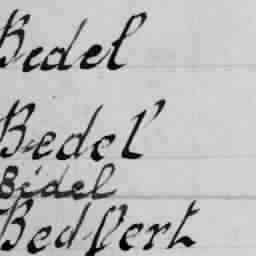 Bedel
Bedel
Bidel
Bedfert